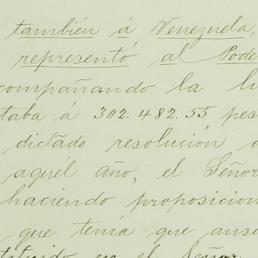 también á Venezuela,
representó al Pode
compañando la li
taba á 302.482.55 pes
dictado resolución d
aquél año, el Señor
haciendo proposicion
que tenía que ause
tituido en el Señor